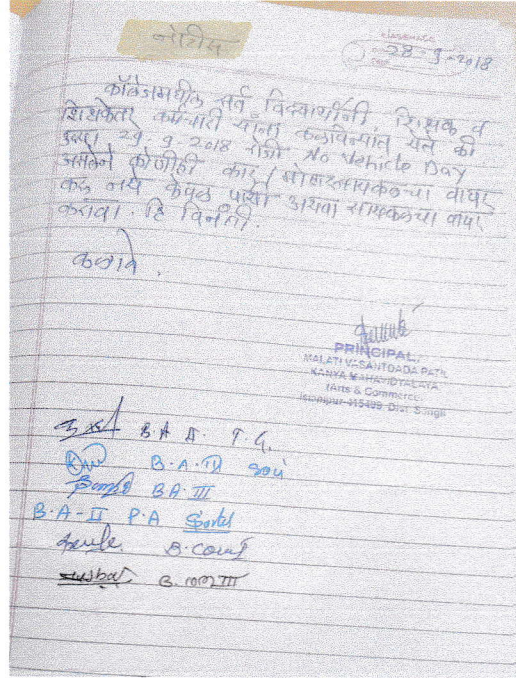 नोटीस
28-9-2018
कॉलेजमधील सर्व विद्यार्थीनी शिक्षक व
शिक्षकेतर कर्मचारी यांना कळविण्यात येते की
उद्या 29.9.2018 रोजी No Vehicle Day
असलेने कोणीही कार/मोटारसायकलचा वापर
करू नये केवळ पायी अथवा सायकलचा वापर
करावा. हि विनंती.
कळावे.
PRINCIPAL,
MALATI VASANTDADA PATIL
KANYA MAHAVIDYALAYA
(Arts & Commerce)
Islampur-415409 Dist Sangli
B A II
B.A.III
BA III
B.A-II P.A
B.com I
B.com III